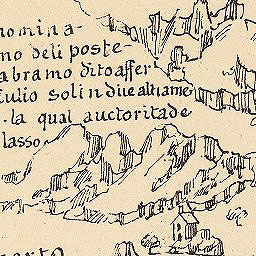 nomina-
mo deli poste-
abramo ditoaffer
Tulio solin diue altriame
la qual auctoritade
lasso